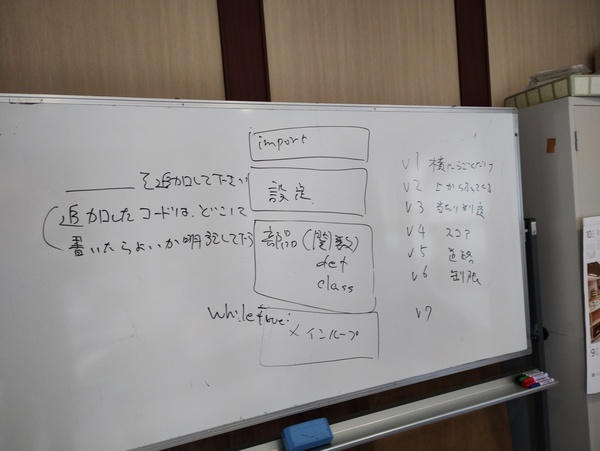 import
設定
部品(関数)
def
class
while true:
メインループ
を追加して下さい
追加したコードは、どこに
書いたらよいか明記して下さい
v1
v2 上から
v3 当たり判定
v4 スコア
v5 道路
v6 制限
v7